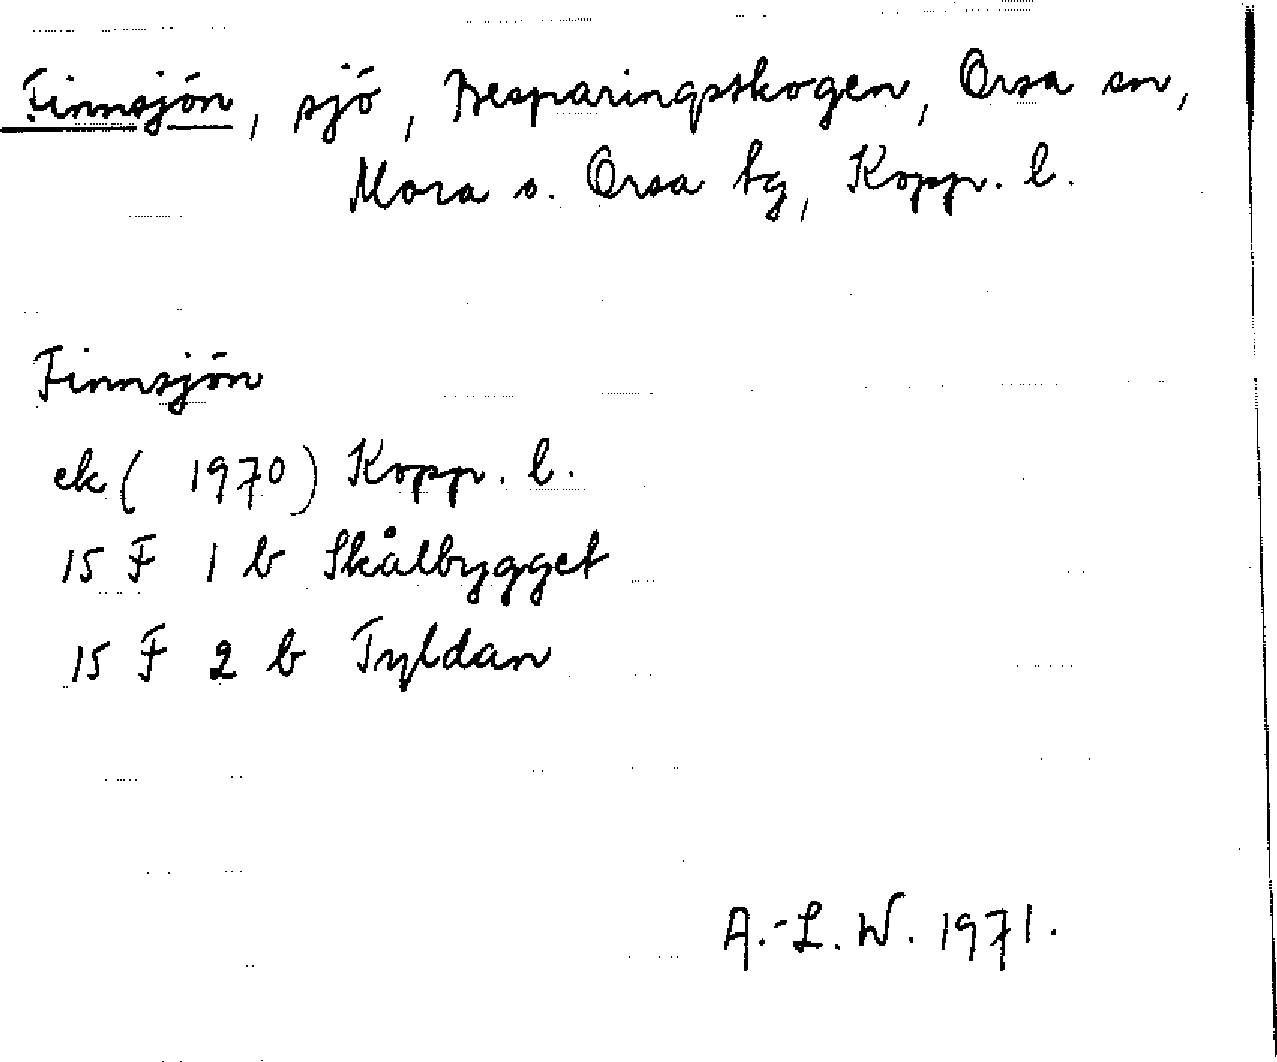 Finnsjön, sjö, Besparingsskogen, Orsa sn,
Mora o. Orsa tg, Kopp. l.
Finnsjön
ek ( 1970) Kopp. l.
15 F 1 b Skålbygget
15 F 2 b Fyldan
A.-L. W. 1971.